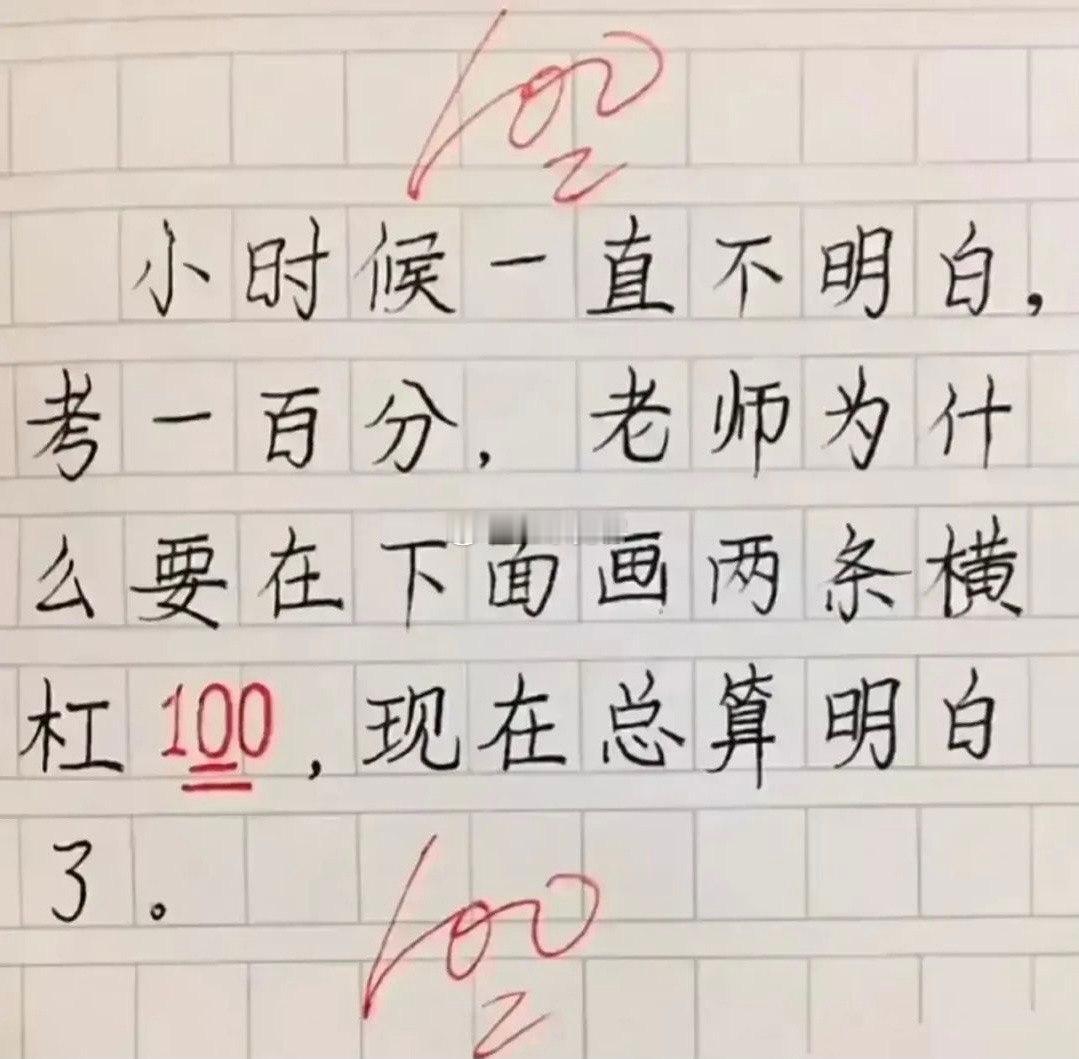 100
小时候一直不明白，
考一百分，老师为什
么要在下面画两条横
杠100，现在总算明白
了。
100